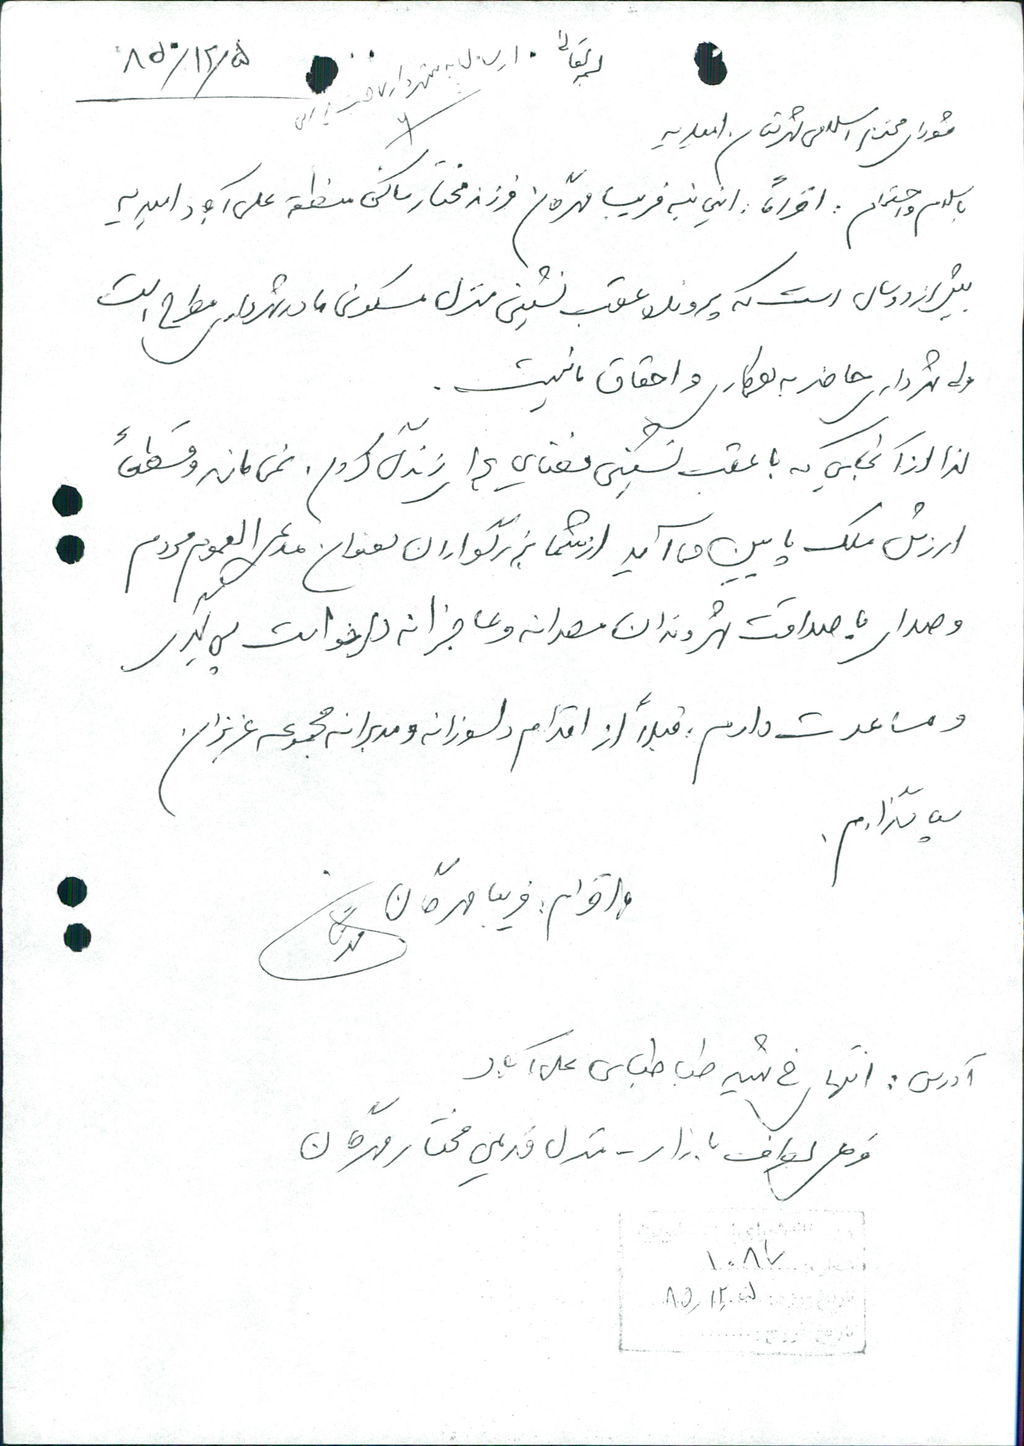 بسمه تعالی
۸۵/۱۲/۵
ارسال به شهرداری
شورای محترم اسلامی شهرستان امیدیه
باسلام و احترام: احتراماً: اینجانبه فریبا مهرگان فرزند مختار ساکن منطقه علی آباد امیدیه
بیش از دو سال است که پرونده عقب نشینی منزل مسکونی ما در شهرداری مطرح است
ولی شهرداری حاضر به همکاری و احقاق ما نیست.
لذا از آنجایی که با عقب نشینی فضایی برای زندگی کردن نمی ماند و قطعاً
ارزش ملک پایین می آید از شما بزرگواران بعنوان مدعی العموم مردم
و صدای با صداقت شهروندان مصرانه و عاجزانه درخواست پی گیری
و مساعدت دارم، قبلاً از اقدام دلسوزانه و مدیرانه مجموعه عزیزان
سپاسگزارم.
فریبا مهرگان
آدرس: انتهای خ شهید طباطبایی علی آباد
بازار - منزل قدیمی مختار مهرگان
۱۰۸۷
۸۵/۱۲/۵